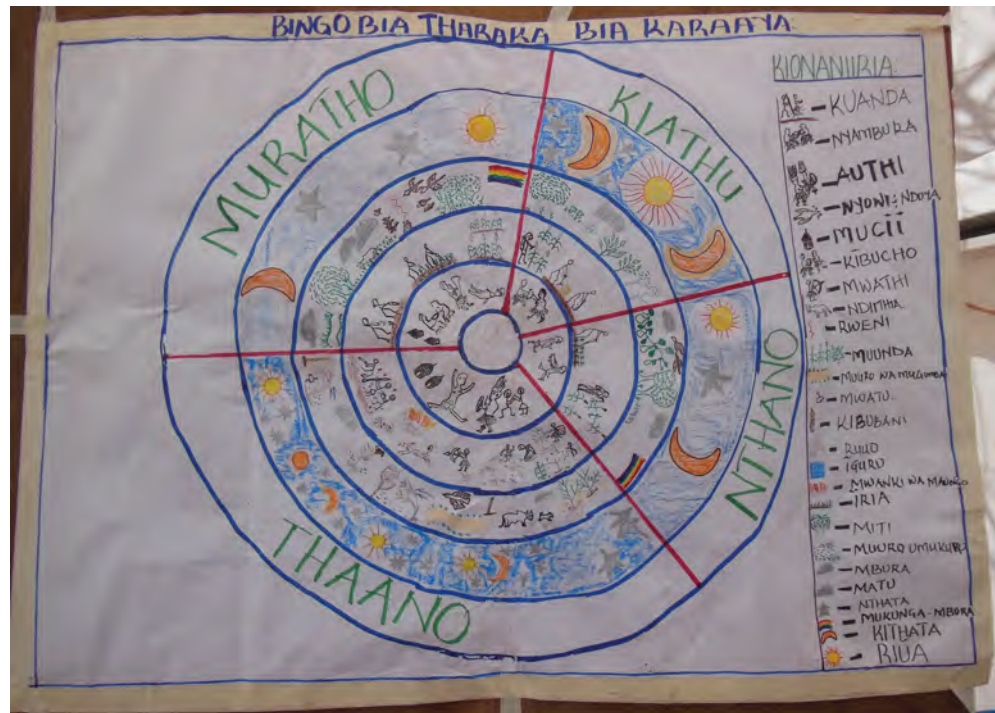 BINGO BIA THARAKA BIA KARAAYA.
MURATHO
KIATHU
NTHANO
THAANO
KIONANIIRIA.
- KUANDA
- NYAMBURA
- AUTHI
- NYONI: NDOYA
- MUCII
- KIBUCHO
- MWATHI
- NDITHIA
- RWENI
- MUUNDA
- MUURO WA MUGUMBA
- MWATU.
- KIBUBANI
- RUUO
- IGURU
- MWANKI WA MAUNGO
- IRIA
- MITI
- MUURO UMUKURU
- MBURA
- MATU
- NTHATA
- MUKUNGA-MBURA
- KITHATA
- RIUA